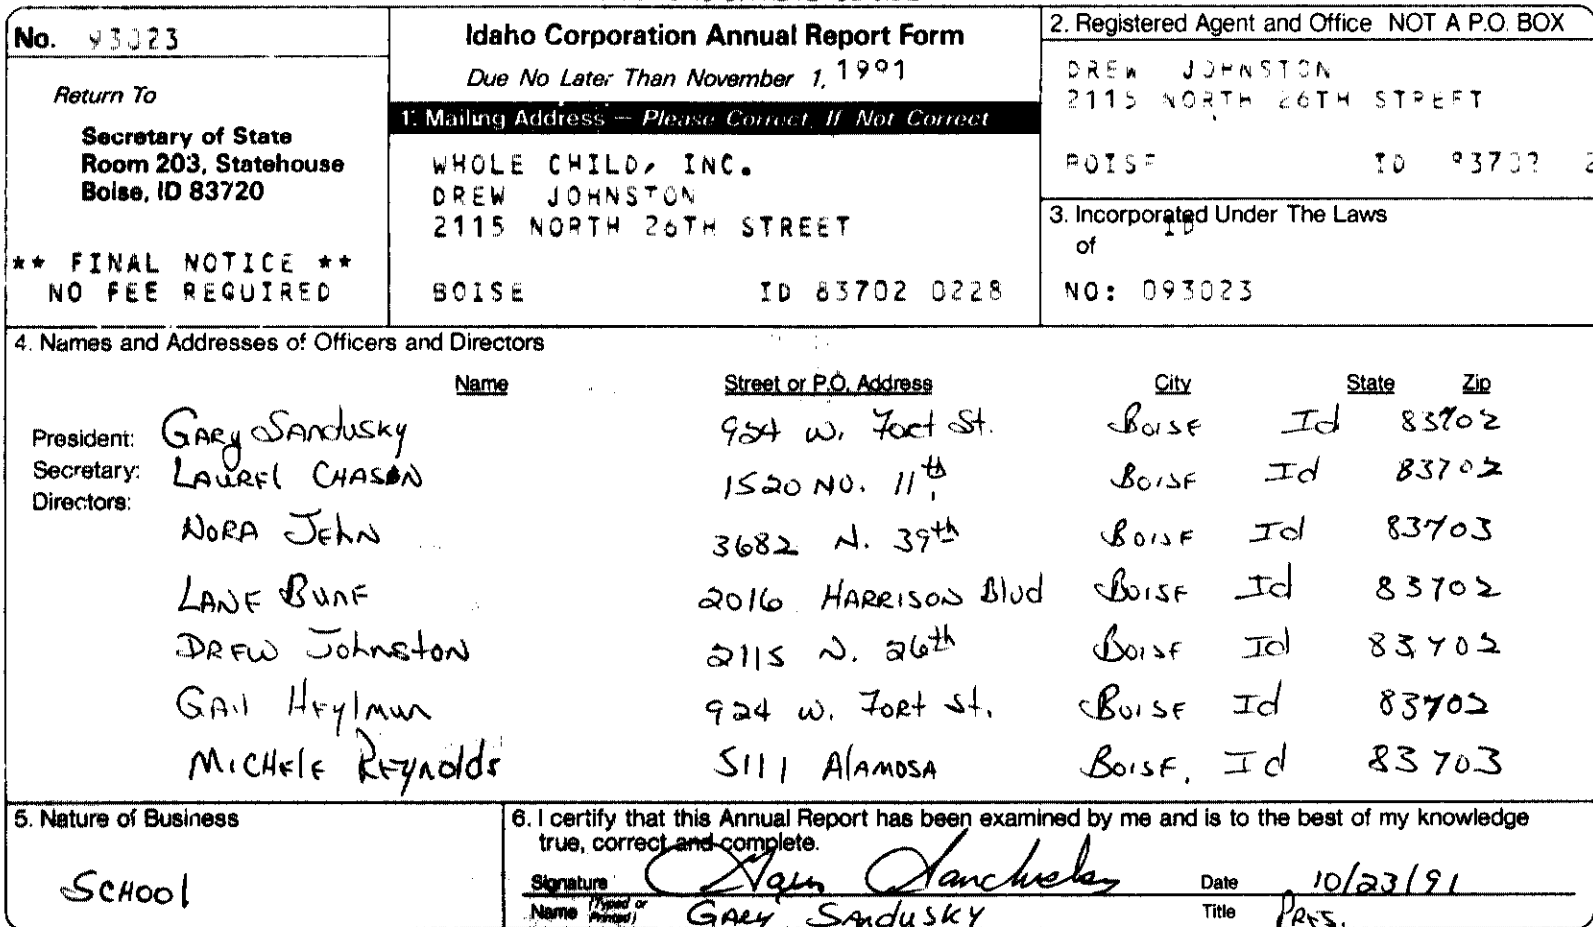 No. 93023
Return To
Secretary of State
Room 203, Statehouse
Boise, ID 83720
** FINAL NOTICE **
NO FEE REQUIRED
Idaho Corporation Annual Report Form
Due No Later Than November 1, 1991
1. Mailing Address — Please Correct, If Not Correct
WHOLE CHILD, INC.
DREW JOHNSTON
2115 NORTH 26TH STREET
BOISE ID 83702 0228
2. Registered Agent and Office NOT A P.O. BOX
DREW JOHNSTON
2115 NORTH 26TH STREET
BOISE ID 83702 2
3. Incorporated Under The Laws
of ID
NO: 093023
4. Names and Addresses of Officers and Directors
Name Street or P.O. Address City State Zip
President: Gary Sandusky 924 W. Fort St. Boise Id 83702
Secretary: Laurel Chason 1520 No. 11th Boise Id 83702
Directors:
Nora Jehn 3682 N. 39th Boise Id 83703
Lane 2016 Harrison Blvd Boise Id 83702
Drew Johnston 2115 N. 26th Boise Id 83702
Gail 924 W. Fort St. Boise Id 83702
Michele Reynolds 5111 Alamosa Boise, Id 83703
5. Nature of Business
School
6. I certify that this Annual Report has been examined by me and is to the best of my knowledge
true, correct and complete.
Signature Gary Sandusky Date 10/23/91
Name (Typed or Printed) Gary Sandusky Title Pres.